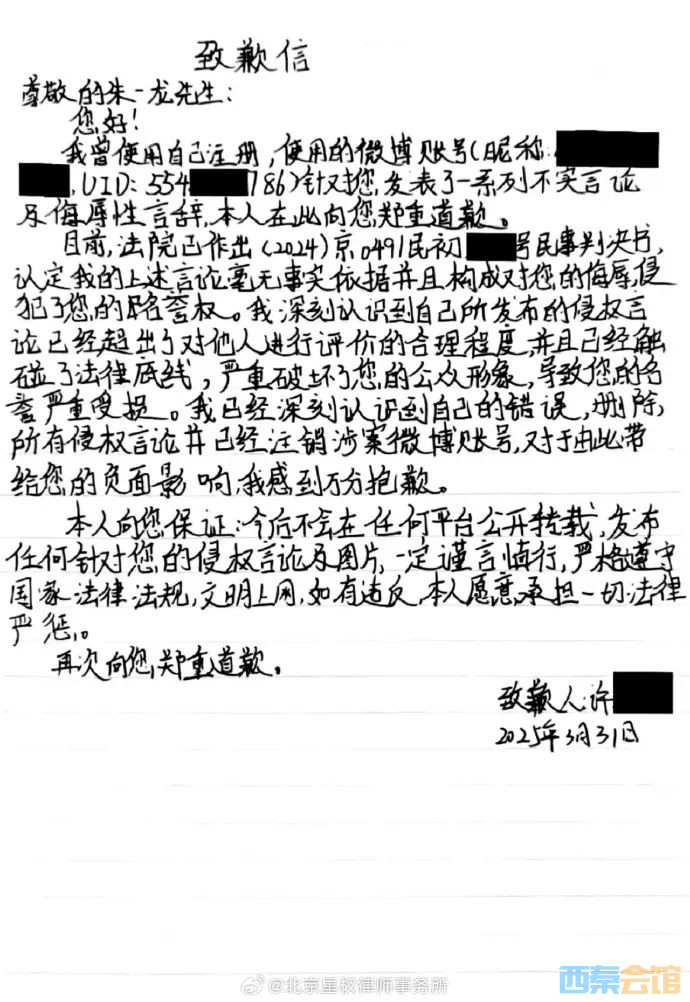 致歉信
尊敬的朱一龙先生:
您好!
我曾使用自己注册,使用的微博账号(昵称:
,UID:554 786)针对您,发表了一系列不实言论
及侮辱性言辞,本人在此向您郑重道歉。
目前,法院已作出(2024)京0491民初 号民事判决书,
认定我的上述言论毫无事实依据并且构成对您的侮辱,侵
犯了您的名誉权。我深刻认识到自己所发布的侵权言
论已经超出了对他人进行评价的合理程度,并且已经触
碰了法律底线,严重破坏了您的公众形象,导致您的名
誉严重受损。我已经深刻认识到自己的错误,删除,
所有侵权言论并已经注销涉案微博账号,对于由此带
给您的负面影响,我感到万分抱歉。
本人向您保证:今后不会在任何平台公开转载,发布
任何针对您的侵权言论及图片,一定谨言慎行,严格遵守
国家法律法规,文明上网,如有违反,本人愿意承担一切法律
严惩。
再次向您郑重道歉。
致歉人:许
2025年3月31日
@北京星权律师事务所
西秦会馆